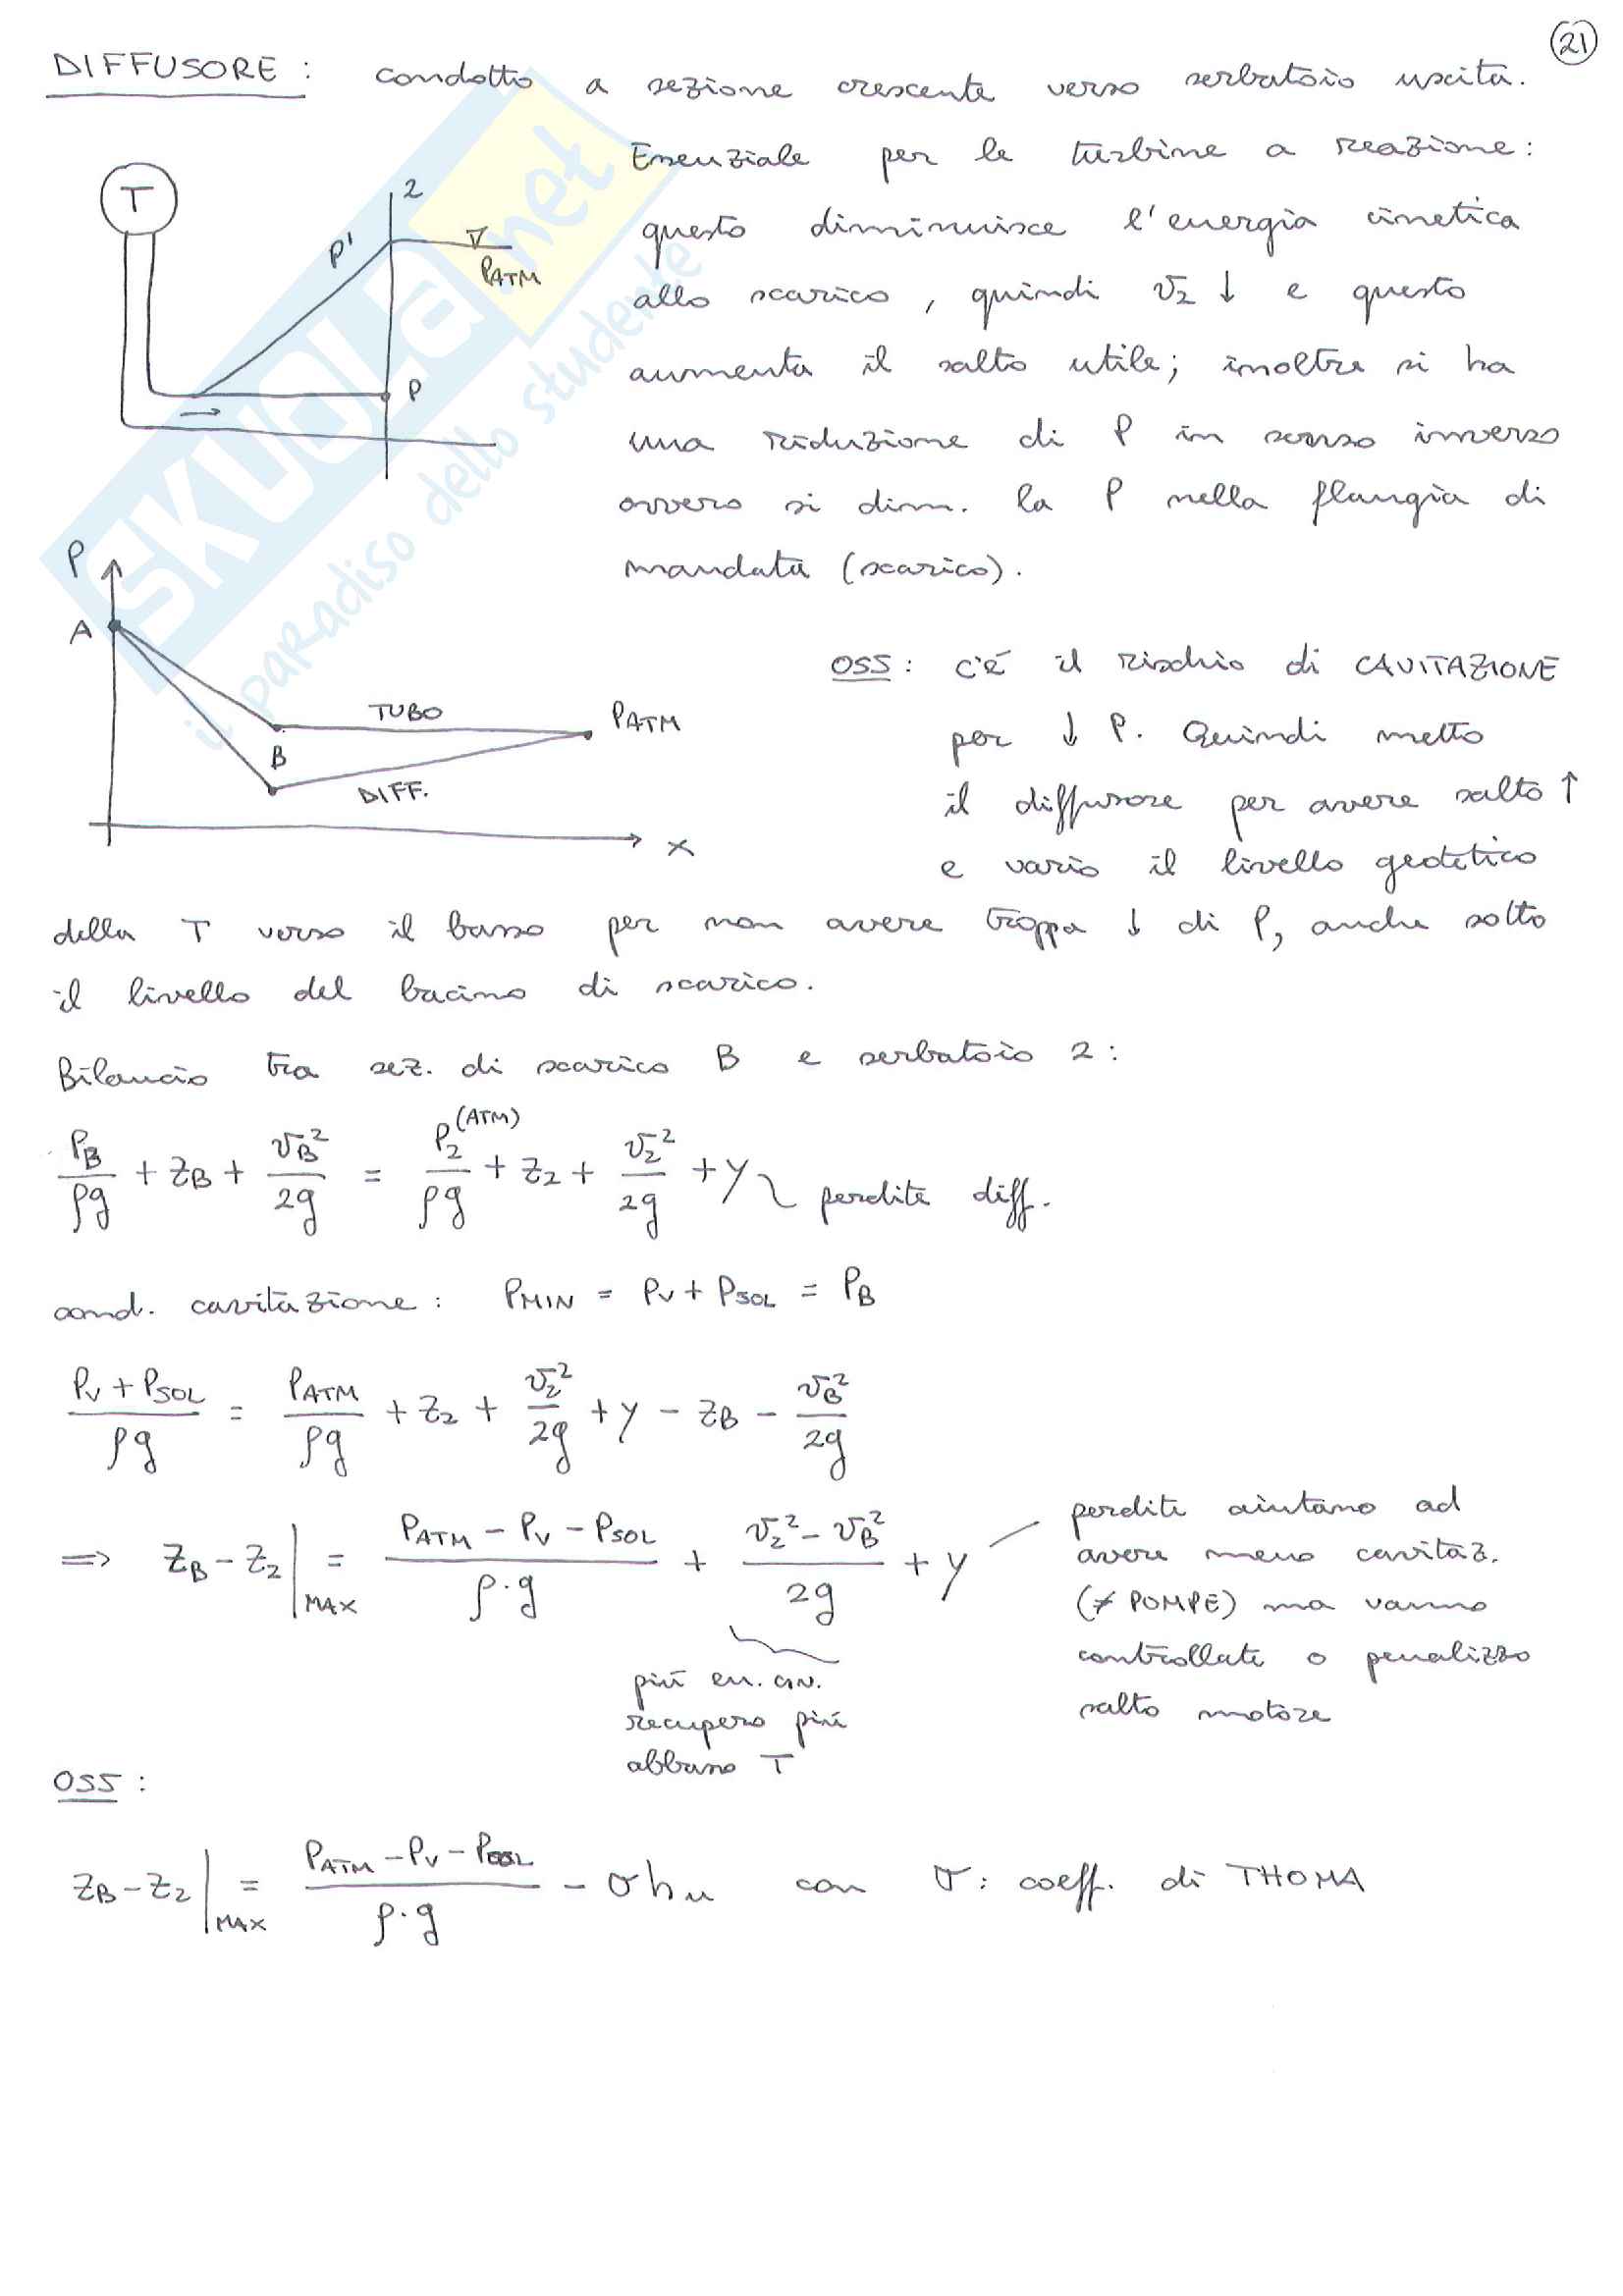 21
DIFFUSORE : condotto a sezione crescente verso serbatoio uscita.
Essenziale per le turbine a reazione:
questo diminuisce l'energia cinetica
allo scarico, quindi v2 ↓ e questo
aumenta il salto utile; inoltre si ha
una riduzione di P in senso inverso
ovvero si dim. la P nella flangia di
mandata (scarico).
T
2
P'
PATM
P
SKUOLA.net
il paradiso dello studente
P
A
TUBO
PATM
B
DIFF.
x
OSS: C'È il rischio di CAVITAZIONE
per ↓ P. Quindi metto
il diffusore per avere salto ↑
e vario il livello geodetico
della T verso il basso per non avere troppa ↓ di P, anche sotto
il livello del bacino di scarico.
Bilancio tra sez. di scarico B e serbatoio 2:
PB/ρg + ZB + vB²/2g = P2(ATM)/ρg + Z2 + v2²/2g + y perdite diff.
cond. cavitazione: PMIN = PV + PSOL = PB
PV + PSOL/ρg = PATM/ρg + Z2 + v2²/2g + y - ZB - vB²/2g
=> ZB - Z2|MAX = PATM - PV - PSOL/ρ·g + v2² - vB²/2g + y
perdite aiutano ad
avere meno cavitaz.
(≠ POMPE) ma vanno
controllate o penalizzo
salto motore
più en. cin.
recupero più
abbasso T
OSS:
ZB - Z2|MAX = PATM - PV - PSOL/ρ·g - σhu con σ: coeff. di THOMA